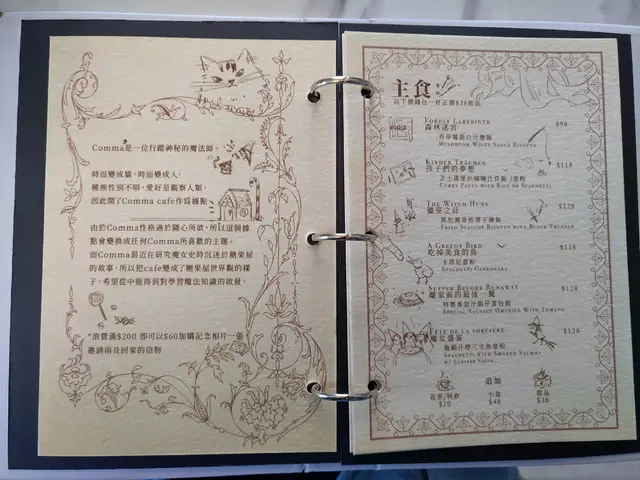 Comma是一位行蹤神秘的魔法師，
時而變成貓，時而變成人，
種族性別不明，愛好是觀察人類，
因此開了Comma cafe作為據點
由於Comma性格過於隨心所欲，所以這個據
點會變換成任何Comma所喜歡的主題，
而Comma最近在研究魔女史時沉迷於糖果屋
的故事，所以把cafe變成了糖果屋世界觀的樣
子，希望從中能得到對學習魔法知識的啟發。
*消費滿$200 即可以$60加購記念相片一張
邀請函及回家的信物
主食
以下價錢包一杯正價$38飲品
FOREST LABYRINTH $98
森林迷宮
香草雜菌白汁燴飯
MUSHROOM WHITE SAUCE RISOTTO
KINDER TRÄUMEN $118
孩子們的夢想
CURRY PATTY WITH RICE OR SPAGHETTI
THE WITCH HUNT $128
獵巫之計
黑松露香煎帶子燴飯
FRIED SCALLOP RISOTTO WITH BLACK TRUFFLE
A GREEDY BIRD $118
吃掉美食的鳥
卡邦尼意粉
SPAGHETTI CARBONARA
SUPPER BEFORE RUNAWAY $128
離家前的最後一餐
SPECIAL SAUSAGE OMURICE WITH TOMATO
FÊTE DE LA SORCIÈRE $128
魔女盛宴
龍蝦汁煙三文魚意粉
SPAGHETTI WITH SMOKED SALMON
W/ LOBSTER SAUCE
追加
花茶/特飲 小食 甜品
$20 $48 $38